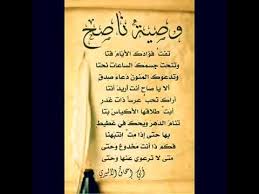 وصية ناصح
تفتّ فؤادك الأيام فتا
وتنحت جسمك الساعات نحتا
وتدعوك المنون دعاء صدق
ألا يا صاح أنت أريد أنتا
أراك تحب عرسا ذات غدر
أبت طلاقها الأكياس بتا
تنام الدهر ويحك في غطيط
بها حتى إذا مت انتبهنا
فكم ذا أنت مخدوع وحتى
متى لا ترعوي عنها وحتى